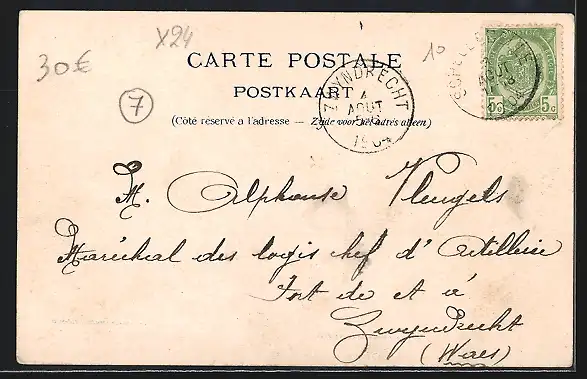 X24
30€
10
CARTE POSTALE
POSTKAART
7
(Côté réservé a l'adresse — Zijde voor het adres alleen)
ZWYNDRECHT
4
AOUT
5-S
1904
5c 5c
M. Alphonse Vleugels
Maréchal des logis chef d'Artillerie
Fort de et à
Zwyndrecht
(Waes)